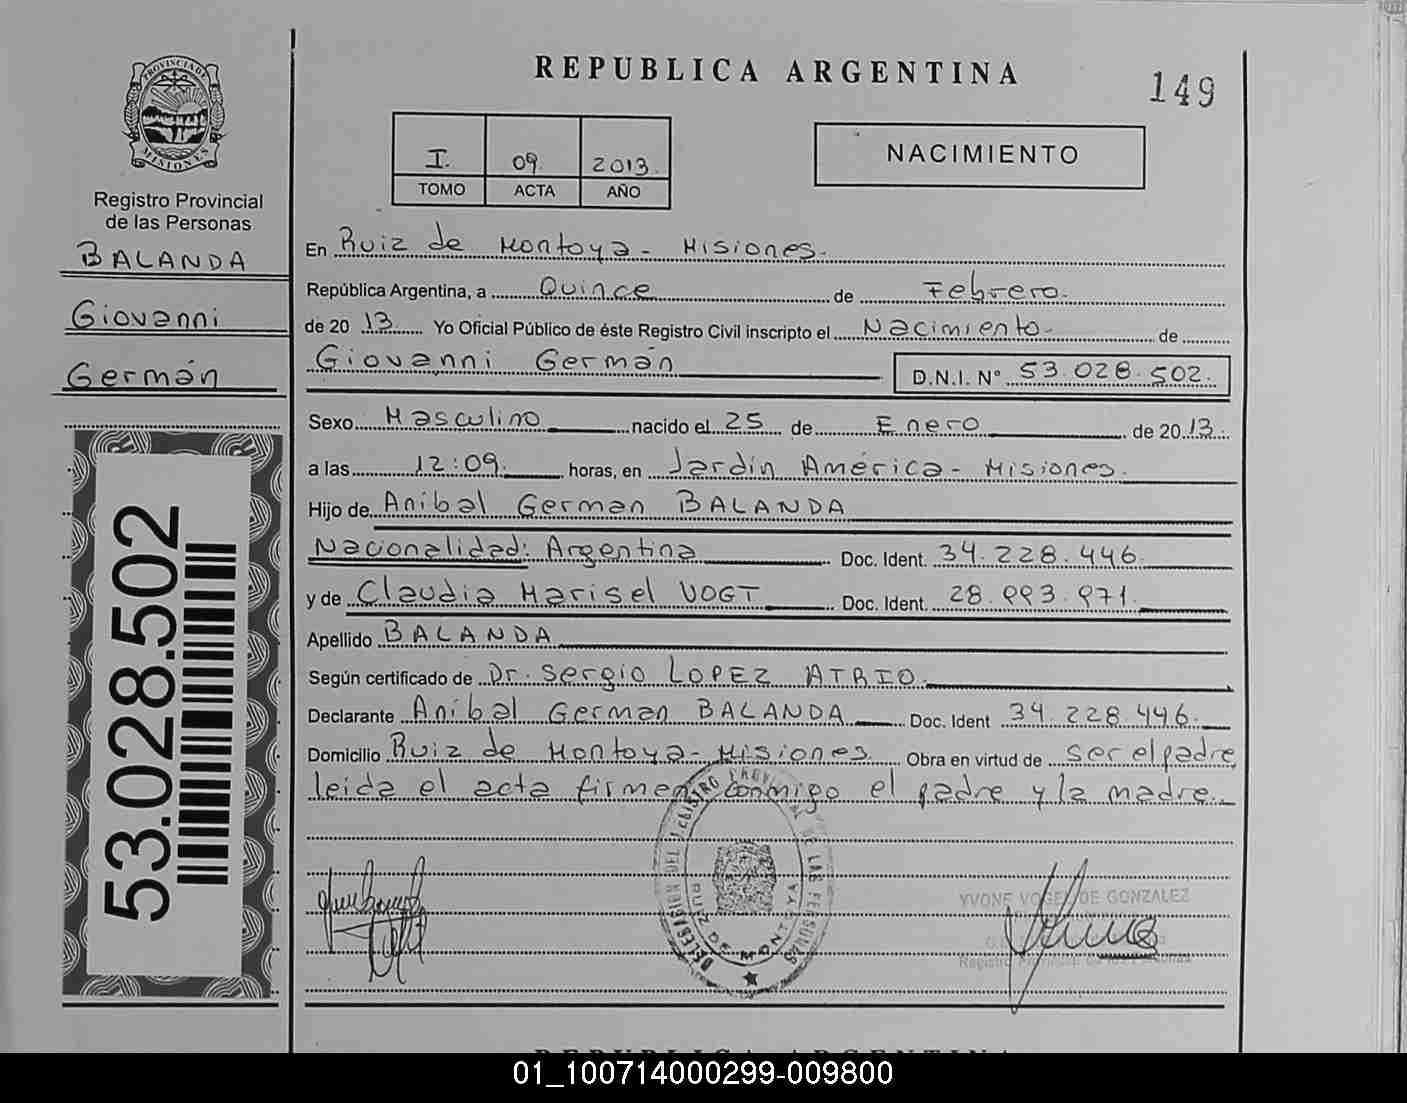 REPUBLICA ARGENTINA
149
PROVINCIA DE MISIONES
Registro Provincial
de las Personas
BALANDA
Giovanni
Germán
53.028.502
I. 09. 2013.
TOMO ACTA AÑO
NACIMIENTO
En Ruiz de Montoya - Misiones.
República Argentina, a Quince de Febrero.
de 20 13. Yo Oficial Público de éste Registro Civil inscripto el Nacimiento de
Giovanni Germán D.N.I. N° 53.028.502.
Sexo Masculino nacido el 25 de Enero de 20 13.
a las 12:09. horas, en Jardín América - Misiones.
Hijo de Aníbal German BALANDA
Nacionalidad: Argentina Doc. Ident. 34.228.446.
y de Claudia Marisel VOGT Doc. Ident. 28.993.971.
Apellido BALANDA
Según certificado de Dr. Sergio LOPEZ ATRIO.
Declarante Aníbal German BALANDA Doc. Ident 34.228.446.
Domicilio Ruiz de Montoya - Misiones. Obra en virtud de ser el padre,
leída el acta firman conmigo el padre y la madre.
DELEGACION DEL REGISTRO PROVINCIAL DE LAS PERSONAS
RUIZ DE MONTOYA
YVONE VOGEL DE GONZALEZ
Registro Provincial de las Personas
REPUBLICA ARGENTINA
01_100714000299-009800